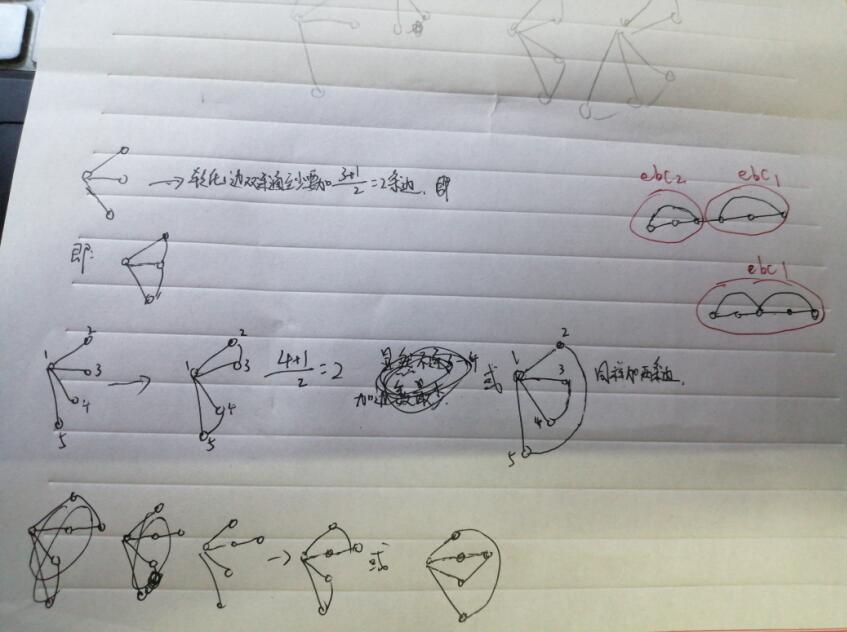 → 转化边双连通至少要加 3+1/2 = 2条边. 即
ebc2 ebc1
即:
ebc1
1 2 3 4 5 → 1 2 3 4 5 4+1/2 = 2 或 1 2 3 4 5 同样加两条边.
→ 或